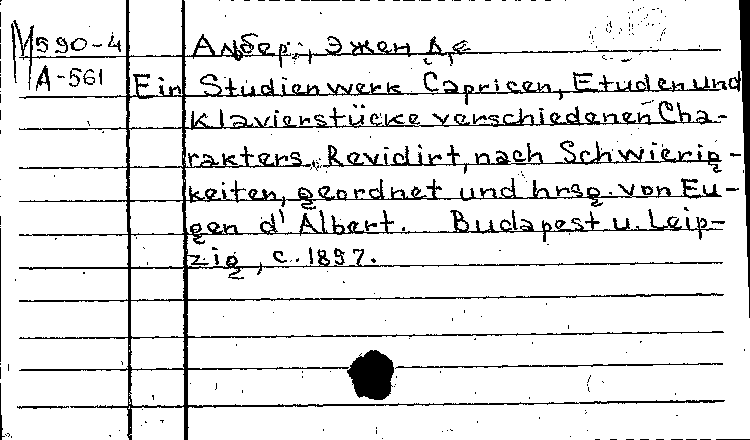 М590-4 Альбер, Эжен д,е
А-561 Ein Studienwerk Capricen, Etuden und
Klavierstücke verschiedenen Cha-
rakters. Revidirt, nach Schwierig-
keiten, geordnet und hrsg. von Eu-
gen d'Albert. Budapest u. Leip-
zig, c. 1897.